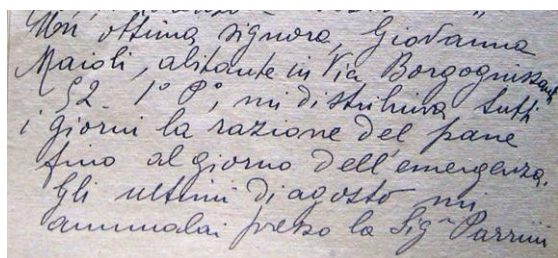 Un'ottima signora, Giovanna
Maioli, abitante in Via Borgognissanti
52 1° P°, mi distribuiva tutti
i giorni la razione del pane
fino al giorno dell'emergenza.
Gli ultimi di agosto mi
ammalai presso la Sig.ra Parrini